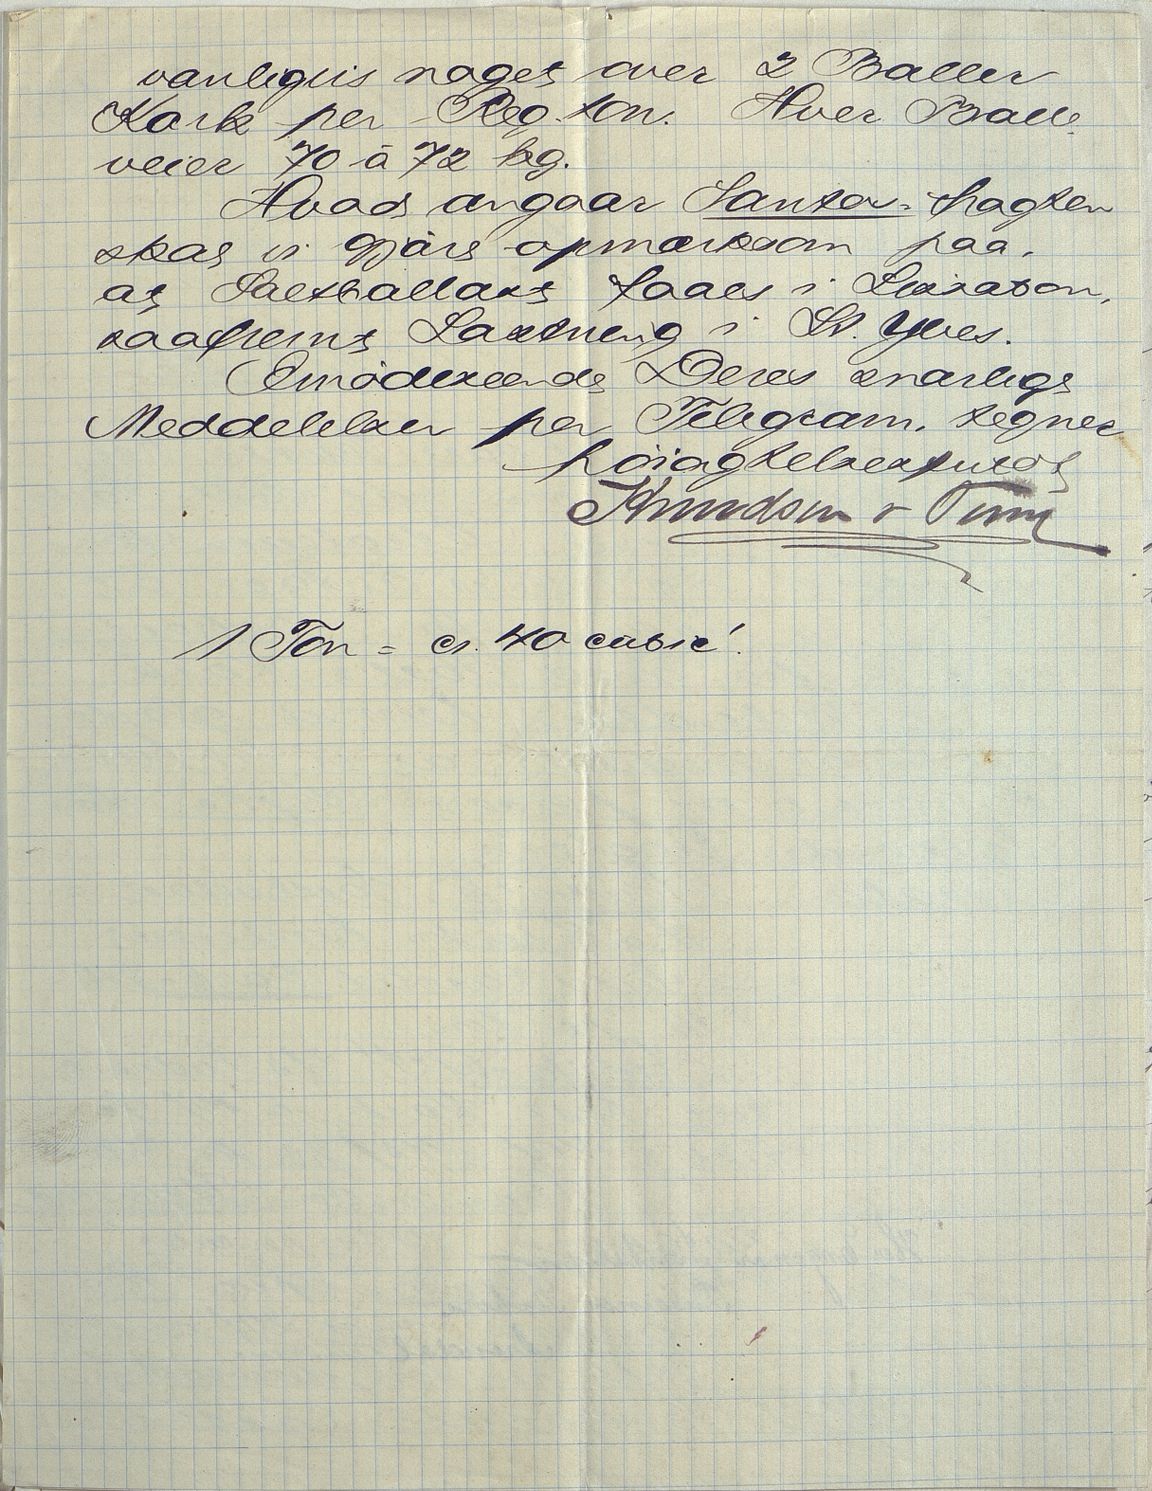 vanligvis noget over 2 Baller
Kork per Reg. ton. Hver Balle
veier 70 à 72 kg.
Hvad angaar Santos-fragten
skal vi gjøre opmærksom paa,
at Saltballast faaes i Lissabon,
saafremt Lastning i St. Yves.
Imødeseende Deres snarlige
Meddelelser per Telegram, tegner
høiagtelsesfuldt
Knudsen &
1 Ton = ca. 40 cubic'.